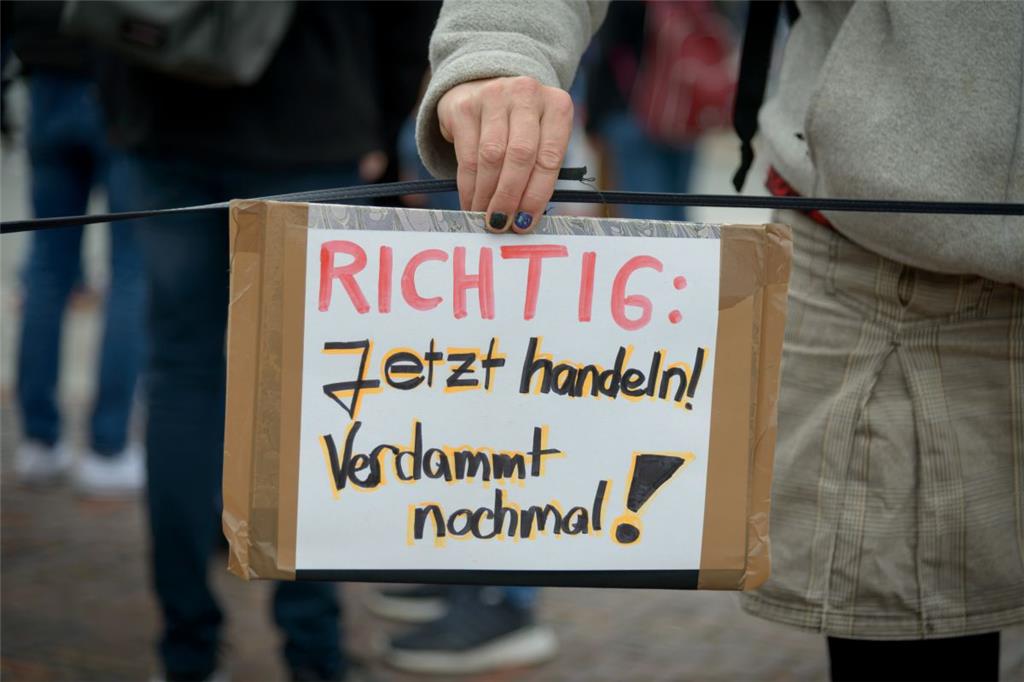 RICHTIG:
Jetzt handeln!
Verdammt
nochmal!